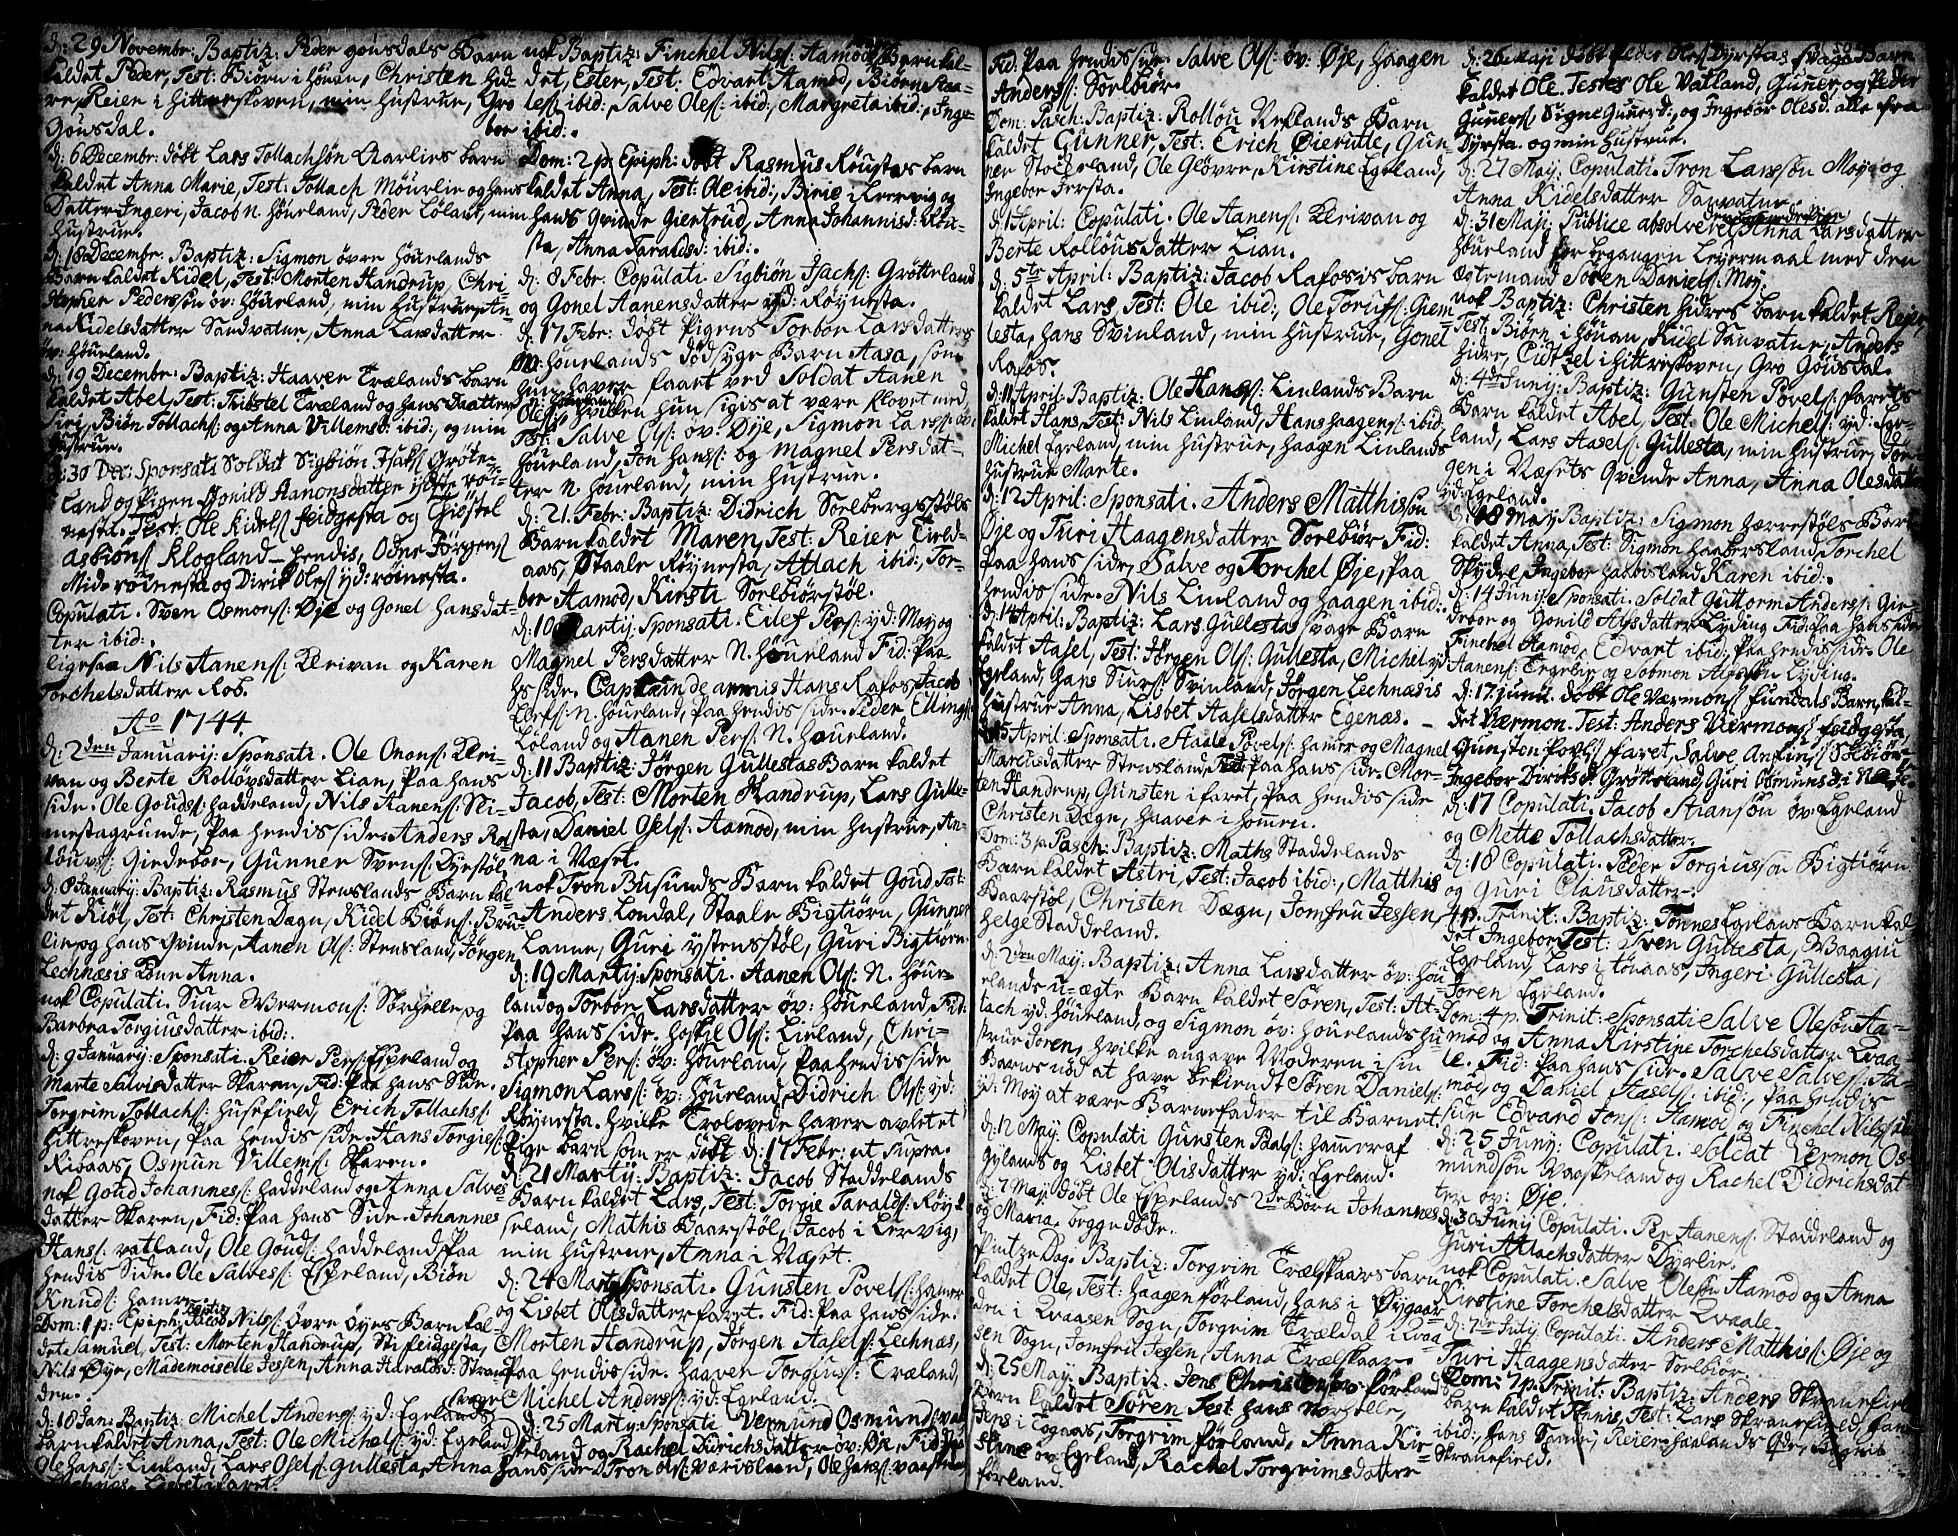 d: 29 Novembr: Baptiz: Peder gousdals Barn
kaldet Peder, Test: Biørn i Houan, Christen Hid-
re, Reier i Hitterskoven, min Hustrue, Gro
Gousdal.
d: 6 Decembr: døbt Lars Tollachsøn Aarlies barn
kaldet Anna Marie, Test: Tollach Mourlie og hans
Datter Ingeri, Jacob n. Høueland, Peder Løland, min
Hustrue.
d: 18 Decembr. Baptiz: Sigmon øvre Houelands
Barn kaldet Kidel, Test: Morten Handrup, Chri-
stopher Pederssøn øv: Høueland, min Hustrue, An-
na Kidelsdatter Sandvatne, Anna Larsdatter
øv: Høueland.
d: 19 Decembr: Baptiz: Haaver Trælands barn
kaldet Abel, Test: Tribstel Træland og hans Daatter
Siri, Biøn Tollachs: og Anna Villemsd: ibid:, og min
Hustrue.
d: 30 Dec: Sponsati Soldat Sigbiøn Isaks Grøte-
land og Pigen Gonild Aanonsdatter ydre røi-
nesta. Test: Ole Kidels feidgesta og Thiostel
Asbions Klogland Hendis, Odne Jørgens
Mid: røinesta og Dirik Oles yd: røinesta.
Copulati. Sven Osmons: Øje og Gonel Hansdat-
ter ibid:.
ligesaa Nils Aanens: Ærivan og Karen
Torchelsdatter Rob.
Ao 1744.
d: 2den Januarij: Sponsati. Ole Onons: Æri-
van og Berte Rolløvsdatter Lian, Paa hans
side. Ole Gouds: Hadderland, Nils Aanens: Sti-
mestagrunde, paa hendis side. Anders Rol-
løuvs: Giedebor, Gunner Svens: Dyrstøl
d: 8 Januarij: Baptiz: Rasmus Stenslands Barn kal-
det Kiøl, Test: Christen Dægn, Kidel Biøns: Bru-
lin og hans Qvinde, Aanen Ols: Stensland, Jørgen
Lechnæsis Kone Anna.
nok Copulati. Siur Wermons: Størhelle og
Barbra Torgiusdatter ibid:.
d: 9 Januarij: Sponsati. Reier Pers: Eskeland og
Marte Salvisdatter Skaren, Fid: Paa hans Side.
Torgrim Tollachs: Husefield, Erich Tollachs:
Hittreskoven, paa hendis side. Hans Torgies:
Ribaas, Osmun Villems: Skaren.
nok Goud Johannes: Haddeland og Anna Salves
datter Skaren, Fid: Paa hans Side. Johannes
Hans: vatland, Ole Gouds: Haddeland, paa
hendis Side Ole Salves: Eskeland, Biøn
Knuds: hamre
Dom: 1 p: Epiph: Baptiz: Jacob Nils: øvre øyes Barn kal-
det Samuel, Test: Morten Handrup, Sti feidgesta,
Nils Øye, Mademoiselle Jessen, Anna Haraldsd: Stran-
den.
d: 18 Jan: Baptiz: Michel Anders: yd: Egelands svage
barn kaldet Anna, Test: Ole Michels: yd: Egeland,
Ole Hans: Linland, Lars Osels: Gullesta, Anna
Lechnes, Lisbet i faret.
nok Baptiz: Finchel Nils: Aamods Barn kal-
det, Ester, Test: Edvart Aamod, Biørn Staa-
les: ibid:, Salve Oles: ibid:, Margreta ibid:, Inge-
bor ibid:.
Dom: 2 p: Epiph: døbt Rasmus Røustas barn
kaldet Anna, Test: Ole ibid:, Birie i Lervig og
hans Qvinde Giertrud, Anna Johannisd: Røu-
sta, Anna Taraldsd: ibid:.
d: 8 Febr: Copulati Sigbiøn Isachs: Grøtteland
og Gonel Aanensdatter yd: Røynesta.
d: 17 Febr: døbt Pigens Torbor Larsdatters
øv: Houelands dødsyge Barn Aasa, som
hun haver faaet ved Soldat Aanen
Oles: hvilken hun sigis at være klovet med
Test: Salve Ols: øv: Øje, Sigmon Lars: øv:
Houeland, Jon Hans: og Magnel Persdat-
ter n. Houeland, min Hustrue.
d: 21. Febr: Baptiz: Didrich Sorlebergsstøls
Barn kaldet Maren, Test: Reier Eield-
aas, Staale Røynesta, Atlach ibid:, Tor-
bor Aamod, Kirsti Sorlebiørstøl.
d: 10 Martij: Sponsati. Eilef Pers: yd: Moy og
Magnel Persdatter N. Høueland Fid: paa
hs side. Captain de armis Hans Rafos, Jacob
Lorfs: N. Høueland, paa hendis side. Peder Ellings:
Løland og Aanen Pers: N. Houeland.
d: 11 Baptiz: Jørgen Gullestas Barn kaldet
Jacob, Test: Morten Handrup, Lars Gulle-
sta, Daniel Osels: Aamod, min Hustrue, An-
na i Næset.
nok Tron Busunds Barn kaldet Goud Test:
Anders Londal, Staale Bigtiørn, Gunner
Lanne, Guri ystensstøl, Guri Bigtiørn.
d: 19 Martij: Sponsati. Aanen Ols: N. Høue-
land og Torbor Larsdatter øv: Høueland, Fid:
Paa hans side. Hoskil Ols: Lieland, Chri-
stopher Pers: øv: Høueland, Paa hendis side
Sigmon Lars: øv: Høueland, Didrich Ols: yd:
Røynesta. Hvilke Trolovede haver avletet
Pige barn som er døbt d: 17 Febr: ut supra.
d: 21 Martij: Baptiz: Jacob Staddelands
Barn kaldet Lars, Test: Torgie Taralds: Røy-
seland, Mathis Baarstøl, Jacob i Lervig,
min Hustrue, Anna i Næset.
d: 24 Martij Sponsati. Gunsten Povels: hamer
og Lisbet Olisdatter faret. Fid: paa hans side.
Morten Handrup, Jørgen Aasels: Lechnæs,
Paa hendis side. Haaver Torgius: Træland,
Michel Anders: yd: Egeland.
d: 25 Martij: Sponsati Vermund Osmunds: vaa-
skeland og Rachel Didrichsdatter øv: Øje, Fid: paa
hans side Tron Ols: Værisland, Ole Hans: vaaskeland
Fid: Paa hendis side. Salve Ols: øv: Øje, Haagen
Anders: Sorlebiør.
Dom: Pasch: Baptiz: Rolløu Reflands Barn
kaldet Gunner, Test: Erich Øierutte, Gun-
ner Stokeland, Ole Gløvre, Kirstine Egeland,
Ingebor Jersta.
d: 1 April: Copulati. Ole Aanens: Ærivan og
Berte Rolløusdatter Lian.
d: 5te April: Baptiz: Jacob Rafosis barn
kaldet Lars, Test: Ole ibid:, Ole Torufs: Giem-
lesta, Hans Svinland, min Hustrue, Gonel
Rafos.
d: 11 April: Baptiz: Ole Hans: Linlands Barn
kaldet Hans, Test: Nils Linland, Hans Haagens: ibid,
Michel Egeland, min Hustrue, Haagen Linlands
Hustrue Marte.
d: 12 April: Sponsati. Anders Matthissøn
Øje og Turi Haagensdatter Sorlebiør Fid:
Paa hans side, Salve og Torchel Øje, Paa
hendis side. Nils Linland og Haagen ibid:.
d: 14 April: Baptiz: Lars Gullestas svage Barn
kaldet Aasel, Test: Jørgen Ols: Gullesta, Michel yd:
Egeland, Hans Siurs: Svinland, Jørgen Lechnæsis
Hustrue Anna, Lisbet Aaselsdatter Egenæs.
d: 15 April: Sponsati. Staale Povels: hamer og Magnel
Marcusdatter Stensland, Fid: paa hans side. Mor-
ten Handrup, Gunsten i faret, Paa hendis side
Christen Dægn, Haaver i Homen.
Dom: 3 p. Pasch: Baptiz: Maths Staddelands
Barn kaldet Astri, Test: Jacob ibid:, Matthis
Baarstøl, Christen Dægn, Jomfru Jessen,
Helge Staddeland.
d: 2den May: Baptiz: Anna Larsdatter øv: Hou-
elands u-ægte Barn kaldet Søren, Test: At-
lach yd: Høueland, og Sigmon øv: Houelands hu-
strue Joren, hvilke angave Moderen i sin
Barns nød at have bekiendt Søren Daniels:
yd: Moy at være Barnefader til Barnet.
d: 12 May: Copulati Gunsten Paals: hamer af
gylands og Lisbet Olisdatter yd: Egeland.
d: 7 Maji døbt Ole Eskelands 2de Børn Johannes
og Maria. begge døde.
Pintze Dag. Baptiz: Torgrim Trælskaars barn
kaldet Ole, Test: Haagen førland, Hans i Øygaar-
den i Qvaasen Sogn, Torgrim Trældal i Qvaa-
sen Sogn, Jomfru Jessen, Anna Trælskaar.
d: 25 May. Baptiz. Jens Christensøn førlands
Barn kaldet Søren Test: Hans Norhelle,
Jens i Tognaas, Torgrim førland, Anna Kir-
stine øv: Egeland, Rachel Torgrimsdatter
førland.
d: 26 Maji døbt Peder Oles Dyrstas svage Barn
kaldet Ole. Testes Ole Vatland, Guner og Peder
Guners, Signe Gunersd:, og Ingebor Olesd. alle fra
Dyrsta. og min hustrue.
d: 27 May: Copulati: Tron Larssøn Moye og
Anna Kidelsdatter Sanvatne.
d: 31 May: Publice absolveret Anna Larsdatter
Houeland for begangen Leyermaal med den
Ægtemand Søren Daniels: Moy.
nok Baptiz: Christen Hidres barn kaldet Reier,
Test: Biørn i Houan, Kidel Sanvatne, Anders
Hidre, Cidtzel i Hittreskoven, Gro Gousdal.
d: 4de Juny: Baptiz: Gunsten Povels: farets
Barn kaldet Abel, Test: Ole Michels: yd: Ege-
land, Lars Aasels: Gullesta, min Hustrue, Jør-
gen i Næsets Qvinde Anna, Anna Olesdatter
yd: Egeland.
d: 18 May Baptiz: Sigmon Hærrestøls Barn
kaldet Anna, Test: Sigmon Haabersland, Torchel
Skydel, Ingebor Haabisland Karen ibid:.
d: 14 Junij: Sponsati. Soldat Guttorm Anders: Gie-
debor og Gonild Alfsdatter Lyding Fid: Paa hans side
Finchel Aamod, Edvart ibid; paa hendis side. Ole
Aanens: Ergebor og Salomon Alfssøn Lyding.
d: 17 Junii. døbt Ole Værmons fundals Barn kal-
det Værmon. Test: Anders Værmons feidgesta,
Gunsten Povls faret, Salve Anfins Solbiør
Ingebor Diriks d. Grøtteland, Guri Osmunsd:
d: 17 Copulati. Jacob Stiansøn øv: Egeland
og Mette Tollachsdatter.
d: 18 Copulati. Peder Torgiussøn Bigtiørn
og Guri Clausdatter.
4 p. Trinit: Baptiz: Tønnes Egelans Barn kal-
det Ingebor Test: Sven Gullesta,
Egeland, Lars i tonaas, Ingeri Gullesta,
Joren Egeland.
Dom: 4 p. Trinit: Sponsati Salve Olesøn Aa-
mod og Anna Kirstine Torchelsdatter Qvaa-
le. Fid: Paa hans side. Salve Salves: Aa-
mod, og Daniel Aasels: ibid:, Paa hendis
side Edvard Jons: Aamod og Finchel Nils: ibid
d: 25 Juny: Copulati. Soldat Vermon Os-
mundsøn Vaaskeland og Rachel Didrichsdat-
ter øv: Øje.
d: 30 Junij Copulati. Per Aanens: Staddeland og
Guri Atlachsdatter Dyrlie.
nok Copulati. Salve Olesøn Aamod og Anna
Kirstine Torchelsdatter Qvaale.
d: 7de July Copulati: Anders Matthis: Øje og
Turi Haagensdatter Sorlebiør.
Dom: 7 p. Trinit: Baptiz: Anders Skranefields
barn kaldet Tønnis, Test: Lars Skranefield, Hans
ibid:, Hans Reier Qde,
Skranefield.